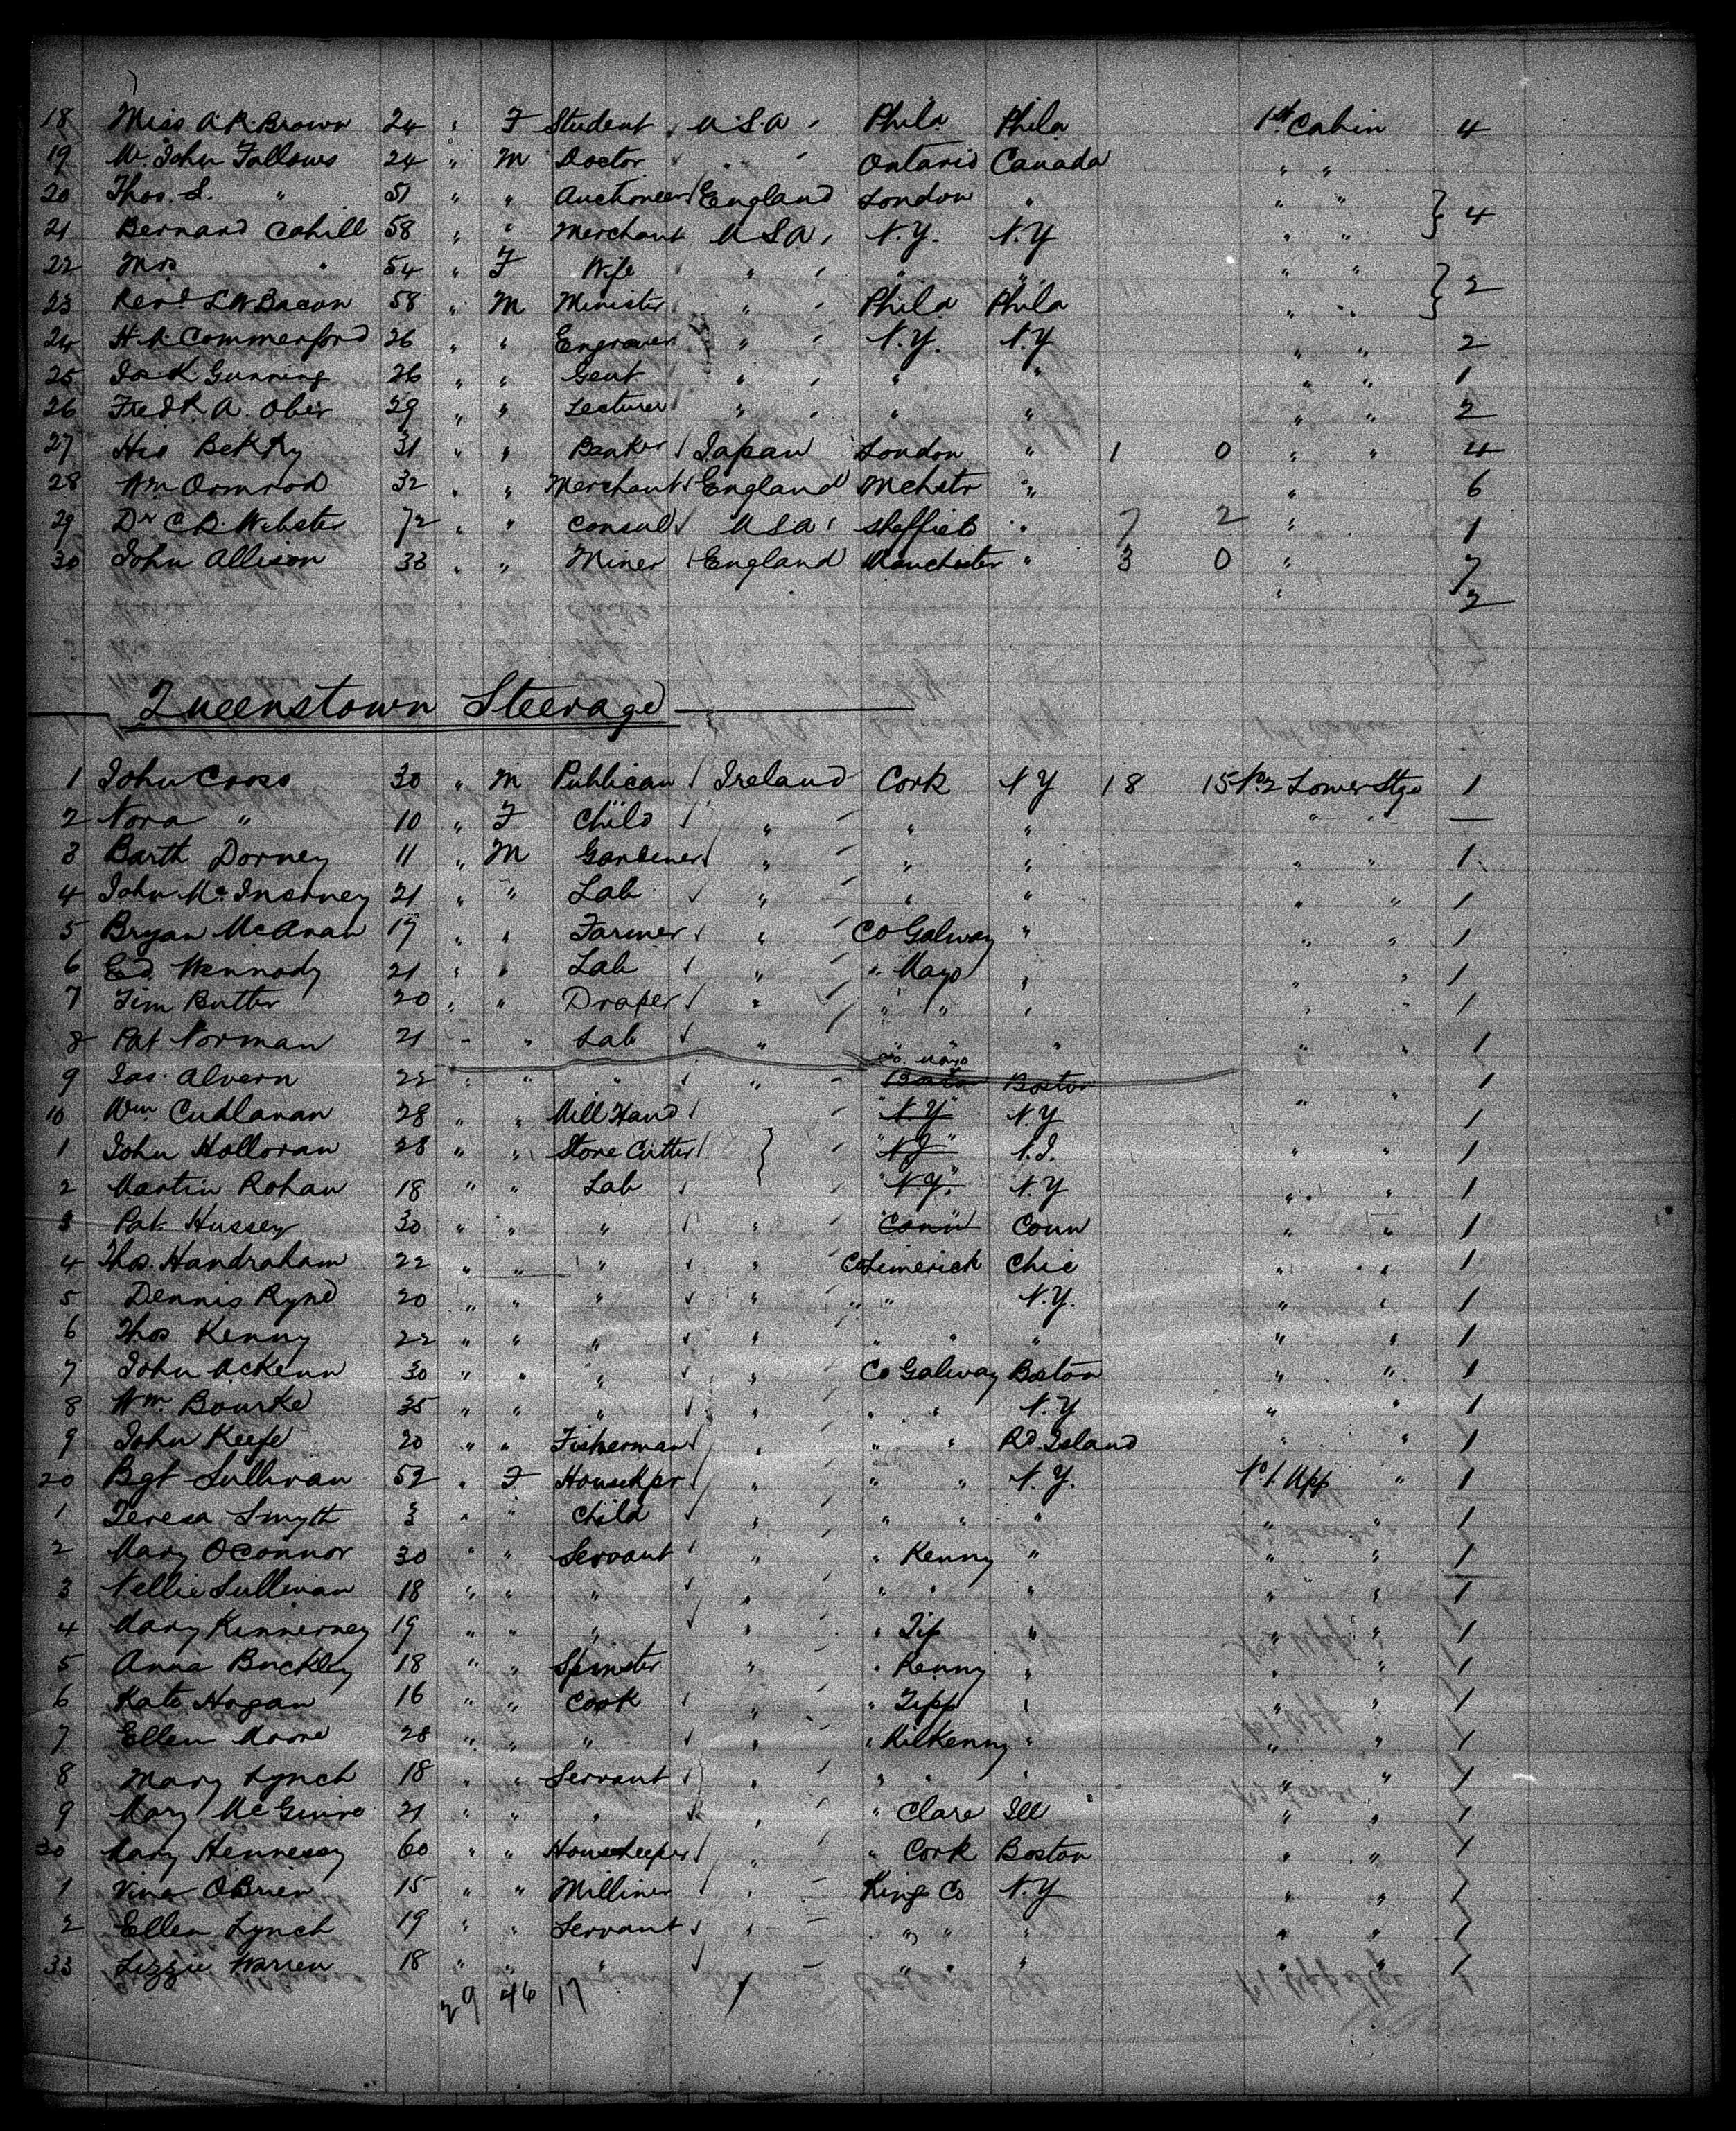 18 Miss A.R. Brown 24 " F Student U.S.A Phila Phila 1st Cabin 4
19 Mr. John Fallows 24 " M Doctor " " Ontario Canada " "
20 Thos. S. " 51 " " Auctioneer England London " " " 4
21 Bernard Cahill 58 " " Merchant U S A N.Y. N.Y " "
22 Mrs " 54 " F Wife " " " " " 2
23 Revd L W Bacon 58 " M Minister " Phila Phila " "
24 H. A Commerford 26 " " Engraver " N.Y. N.Y " " 2
25 Gunning 26 " " Gent " " " " " 1
26 Fredk A. Ober 29 " " Lecturer " " " " " 2
27 31 " " Banker Japan London " 1 0 " " 4
28 Wm Ormrod 32 " " Merchant England Mchstr " " 6
29 Dr C B. Webster 72 " " Consul U S A Sheffield " 7 2 " 1
30 John Allison 33 " " Miner England Manchester " 3 0 " 7
" 2
Queenstown Steerage
1 John Cross 30 " M Publican Ireland Cork N Y 18 15 No 2 Lower Stge 1
2 Nora " 10 " F Child " " " " " —
3 Barth Dorney 11 " M Gardener " " " " " 1
4 John McInerney 21 " " Lab " " " " " 1
5 Bryan McAnan 19 " " Farmer " Co Galway " " " 1
6 Ed. Wennody 21 " " Lab " " Mayo " " " 1
7 Tim Butler 20 " " Draper " " " " " " 1
8 Pat Norman 21 " " Lab " " " " " " 1
Co. Mayo
9 Jas. Alvern 22 " " " " Boston Boston 1
10 Wm Cudlanan 28 " " Mill Hand "N.Y" N.Y " " 1
1 John Holloran 28 " " Stone Cutter "N J" N.J. " " 1
2 Martin Rohan 18 " " Lab "N.Y." N.Y " " 1
3 Pat Hussey 30 " " " " "Conn" Conn " " 1
4 Thos. Handraham 22 " " " " Co Limerick Chic " " 1
5 Dennis Ryne 20 " " " " " " N.Y. " " 1
6 Thos Kenny 22 " " " " " " " " " 1
7 John Ackenn 30 " " " " Co Galway Boston " " 1
8 Wm Bourke 35 " " " " " " N.Y " " 1
9 John Keefe 20 " " Fisherman " " " Rd. Island " " 1
20 Bgt Sullivan 52 " F Housekpr " " " N.Y. No 1 Upp " 1
1 Teresa Smyth 3 " " Child " " " " " " 1
2 Mary OConnor 30 " " Servant " " Kenny " " " 1
3 Nellie Sullivan 18 " " " " " " " " " 1
4 Mary Kinnerney 19 " " " " " Tip " " " 1
5 Anna Buckley 18 " " Spinster " " Kenny " " " 1
6 Kate Hogan 16 " " Cook " " Tipp " " " 1
7 Ellen Moore 28 " " " " " Kilkenny " " " 1
8 Mary Lynch 18 " " Servant " " " " " " 1
9 Mary McGuire 21 " " " " " Clare Ill " " 1
30 Mary Hennessy 60 " " Housekeeper " " Cork Boston " " 1
1 Vina OBrien 15 " " Milliner " King Co N.Y " " 1
2 Ellen Lynch 19 " " Servant " " " " " " 1
33 Lizzie Warren 18 " " " " " " " " " 1
29 46 17 1